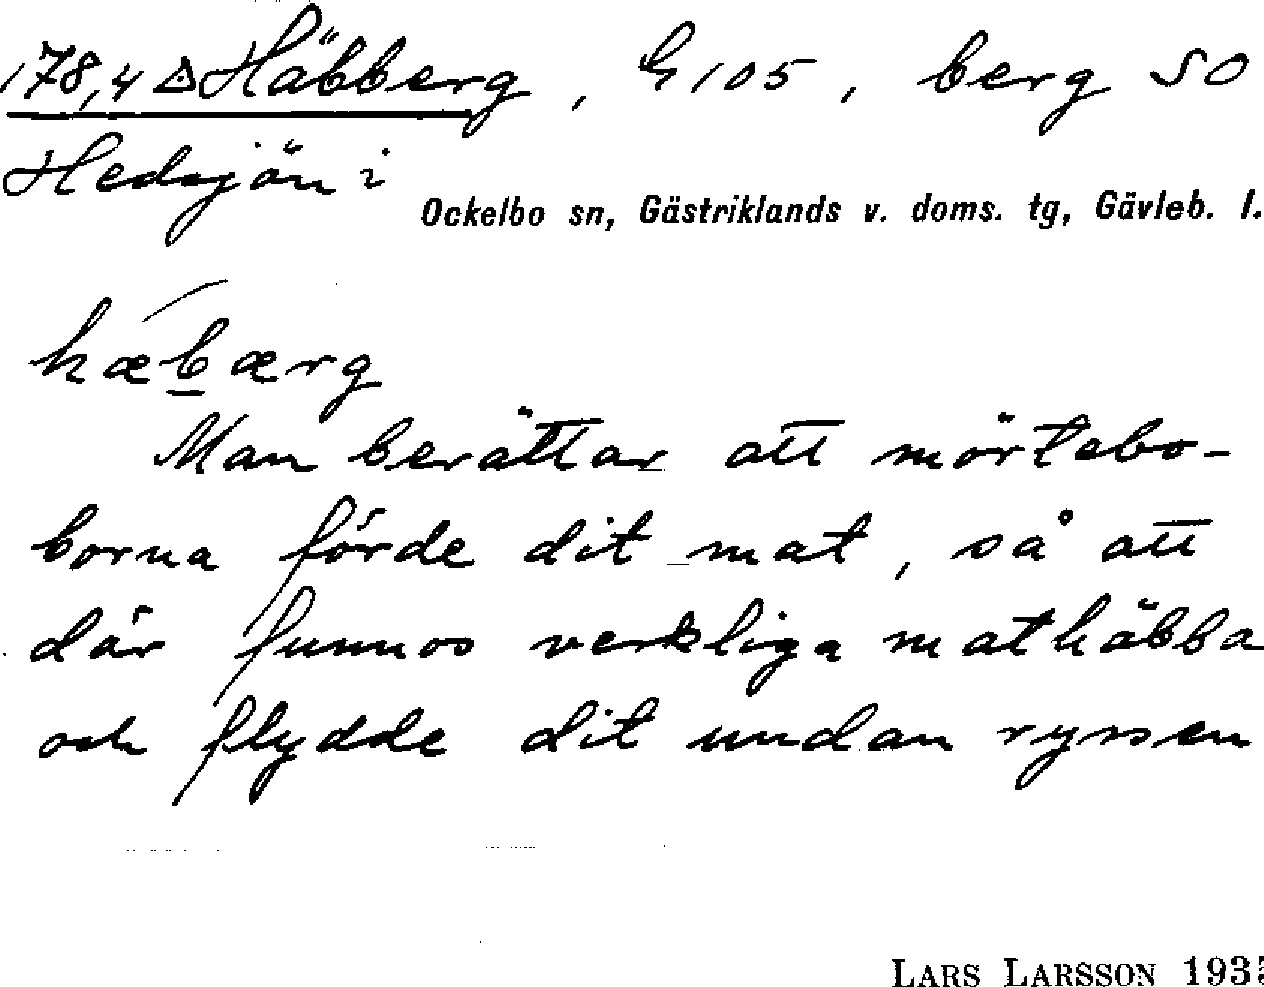 178,4 △ Häbberg, G 105, berg SO
Hedsjön i
Ockelbo sn, Gästriklands v. doms. tg, Gävleb. l.
hǽb̲ærg
Man berättar att mörtebo-
borna förde dit mat, så att
där funnos verkliga mathäbba
och flydde dit undan ryssen
LARS LARSSON 193